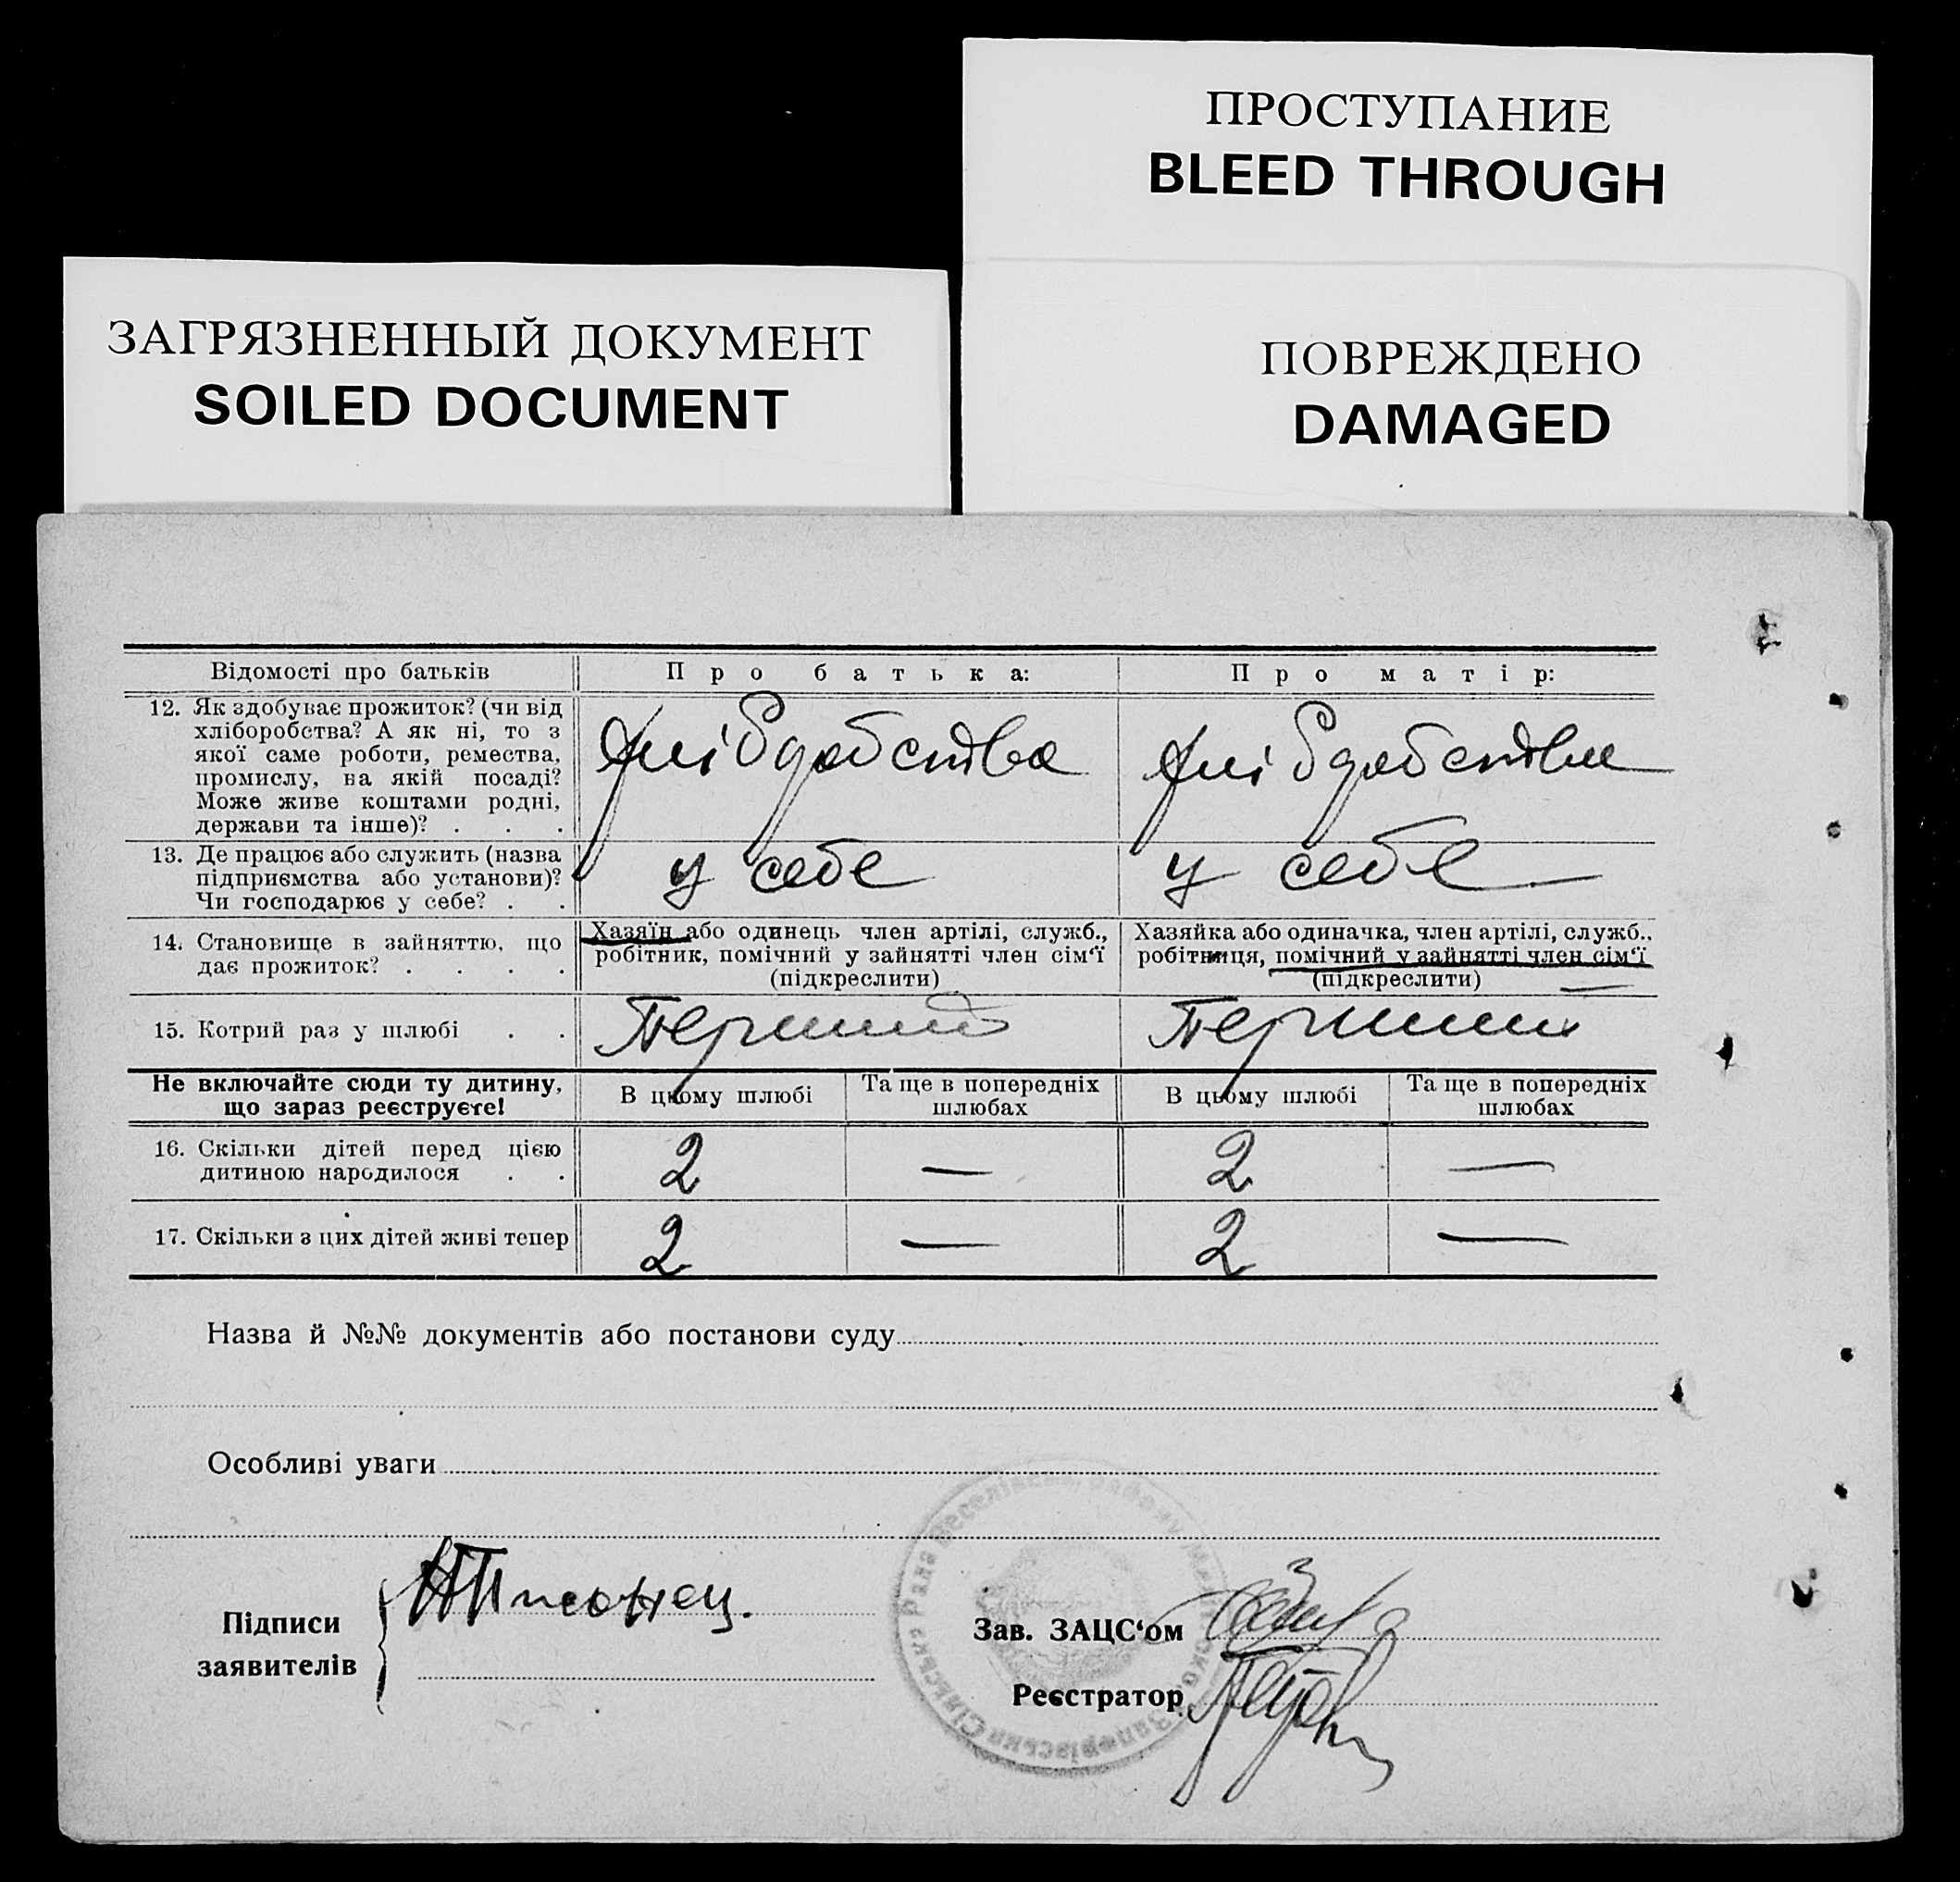 ПРОСТУПАНИЕ
BLEED THROUGH
ЗАГРЯЗНЕННЫЙ ДОКУМЕНТ
SOILED DOCUMENT
ПОВРЕЖДЕНО
DAMAGED
Відомості про батьків
Про батька:
Про матір:
12. Як здобуває прожиток? (чи від
хліборобства? А як ні, то з
якої саме роботи, ремества,
промислу, на якій посаді?
Може живе коштами родні,
держави та інше)? . . .
13. Де працює або служить (назва
підприємства або установи)?
Чи господарює у себе? . .
у себе
у себе
14. Становище в зайняттю, що
дає прожиток? . . . .
Хазяїн або одинець член артілі, служб.,
робітник, помічний у зайнятті член сім‘ї
(підкреслити)
Хазяйка або одиначка, член артілі, служб.,
робітниця, помічний у зайнятті член сім‘ї
(підкреслити)
15. Котрий раз у шлюбі . .
Перший
Перший
Не включайте сюди ту дитину,
що зараз реєструєте!
В цьому шлюбі
Та ще в попередніх
шлюбах
В цьому шлюбі
Та ще в попередніх
шлюбах
16. Скільки дітей перед цією
дитиною народилося . .
2 —
2 —
17. Скільки з цих дітей живі тепер
2 —
2 —
Назва й №№ документів або постанови суду
Особливі уваги
Підписи
заявителів
Зав. ЗАЦС‘ом
Реєстратор